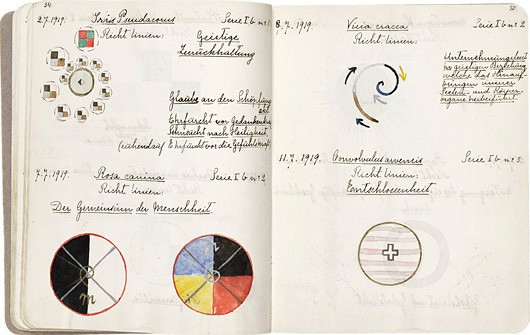 34.
2.7.1919. Iris Pseudacorus Serie I b nr 1.
Richt linien: Geistige
Zurückhaltung
Glaube an den Schöpfung
Ehrfurcht vor Gedanken
Sehnsucht nach Heiligkeit.
Ehrfurcht vor die
7.7.1919. Rosa canina Serie I b nr 2.
Richt linien:
Der Gemeinsinn der Menschheit.
8.7.1919. Vicia cracca Serie I b nr 2
Richt linien:
Unternehmungslust
in geistigen Beziehung
welche das
innerer
Seelen- und Körper-
organe herbeiführt.
11.7.1919. Convolvulus arvensis Serie I b nr 3.
Richt linien:
Entschlossenheit